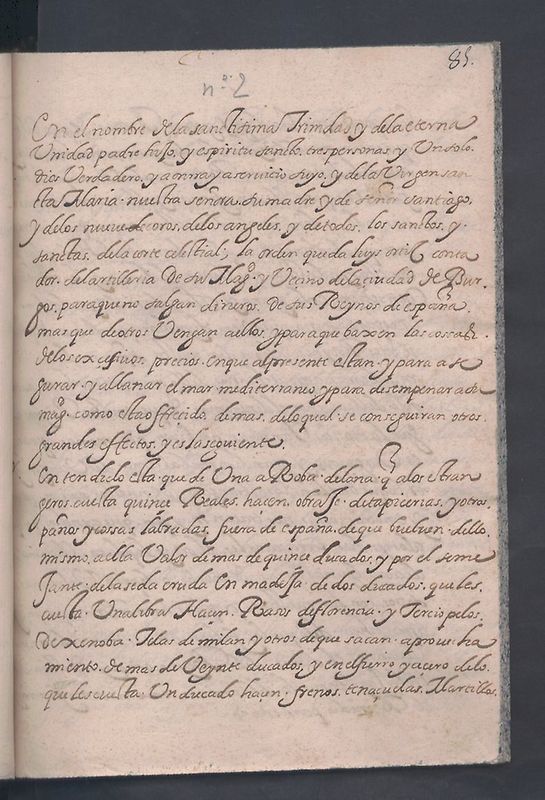 85.
nº 2
En el nombre de la sanctissima Trinidad y de la eterna
Unidad padre hijo, y espiritu sancto, tres personas, y Un solo
dios Verdadero, y a onrra y a servicio suyo, y de la Virgen san
cta Maria. nuestra señora, su madre y de señor santiago,
y de los nueve coros, de los angeles, y de todos, los sanctos, y.
sanctas, de la corte celestial, la orden que da luys ortiz conta
dor. del artilleria De Su Mag. y Vezino de la ciudad de Bur
gos, para que no salgan dineros. de sus Reynos de españa.
mas que de otros Vengan a ellos, y para que baxen las cossas.
de los excesivos, precios. en que al presente estan. y para ase
gurar. y allanar el mar mediterraneo, y para desempenar a su
mag. como esta offrecido, de mas, de lo qual. se conseguiran otros.
grandes effectos, y es lo siguiente.
Entendido esta. que de Una aRoba. de lana. q̃ a los estran
geros, cuesta quince Reales, hacen, obraje. de tapicerias, y otros
paños y cossas labradas, fuera de españa, de que buelven. dello
mismo, a ella Valor de mas de quince ducados, y por el seme
Jante. de la seda cruda En madeja. de dos ducados. que les.
cuesta. Una libra Hacen. Rasos de florencia. y Terciopelos.
de xenoba. Telas de milan y otros de que sacan. aprovecha
miento. de mas de Veynte ducados, y en el fierro y acero de lo.
que les cuesta. Un ducado hacen. frenos, tenaçuelas, Martillos,